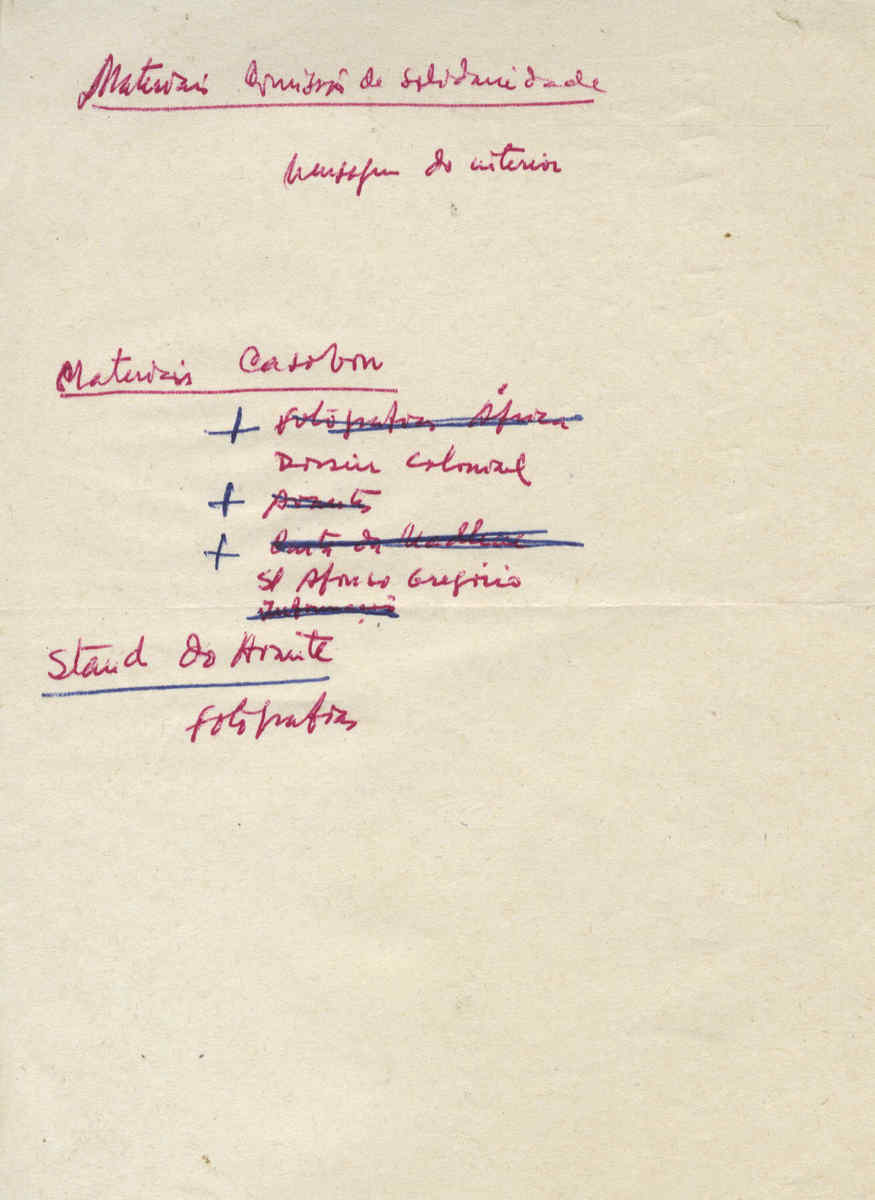 Materiais Comissão de solidariedade
Mensagem do interior
Materiais Casobon
+ Fotografias África
Dossier Colonial
+ Avantes
+ Carta da
Sr Afonso Gregório
Informação
Stand do Avante
Fotografias